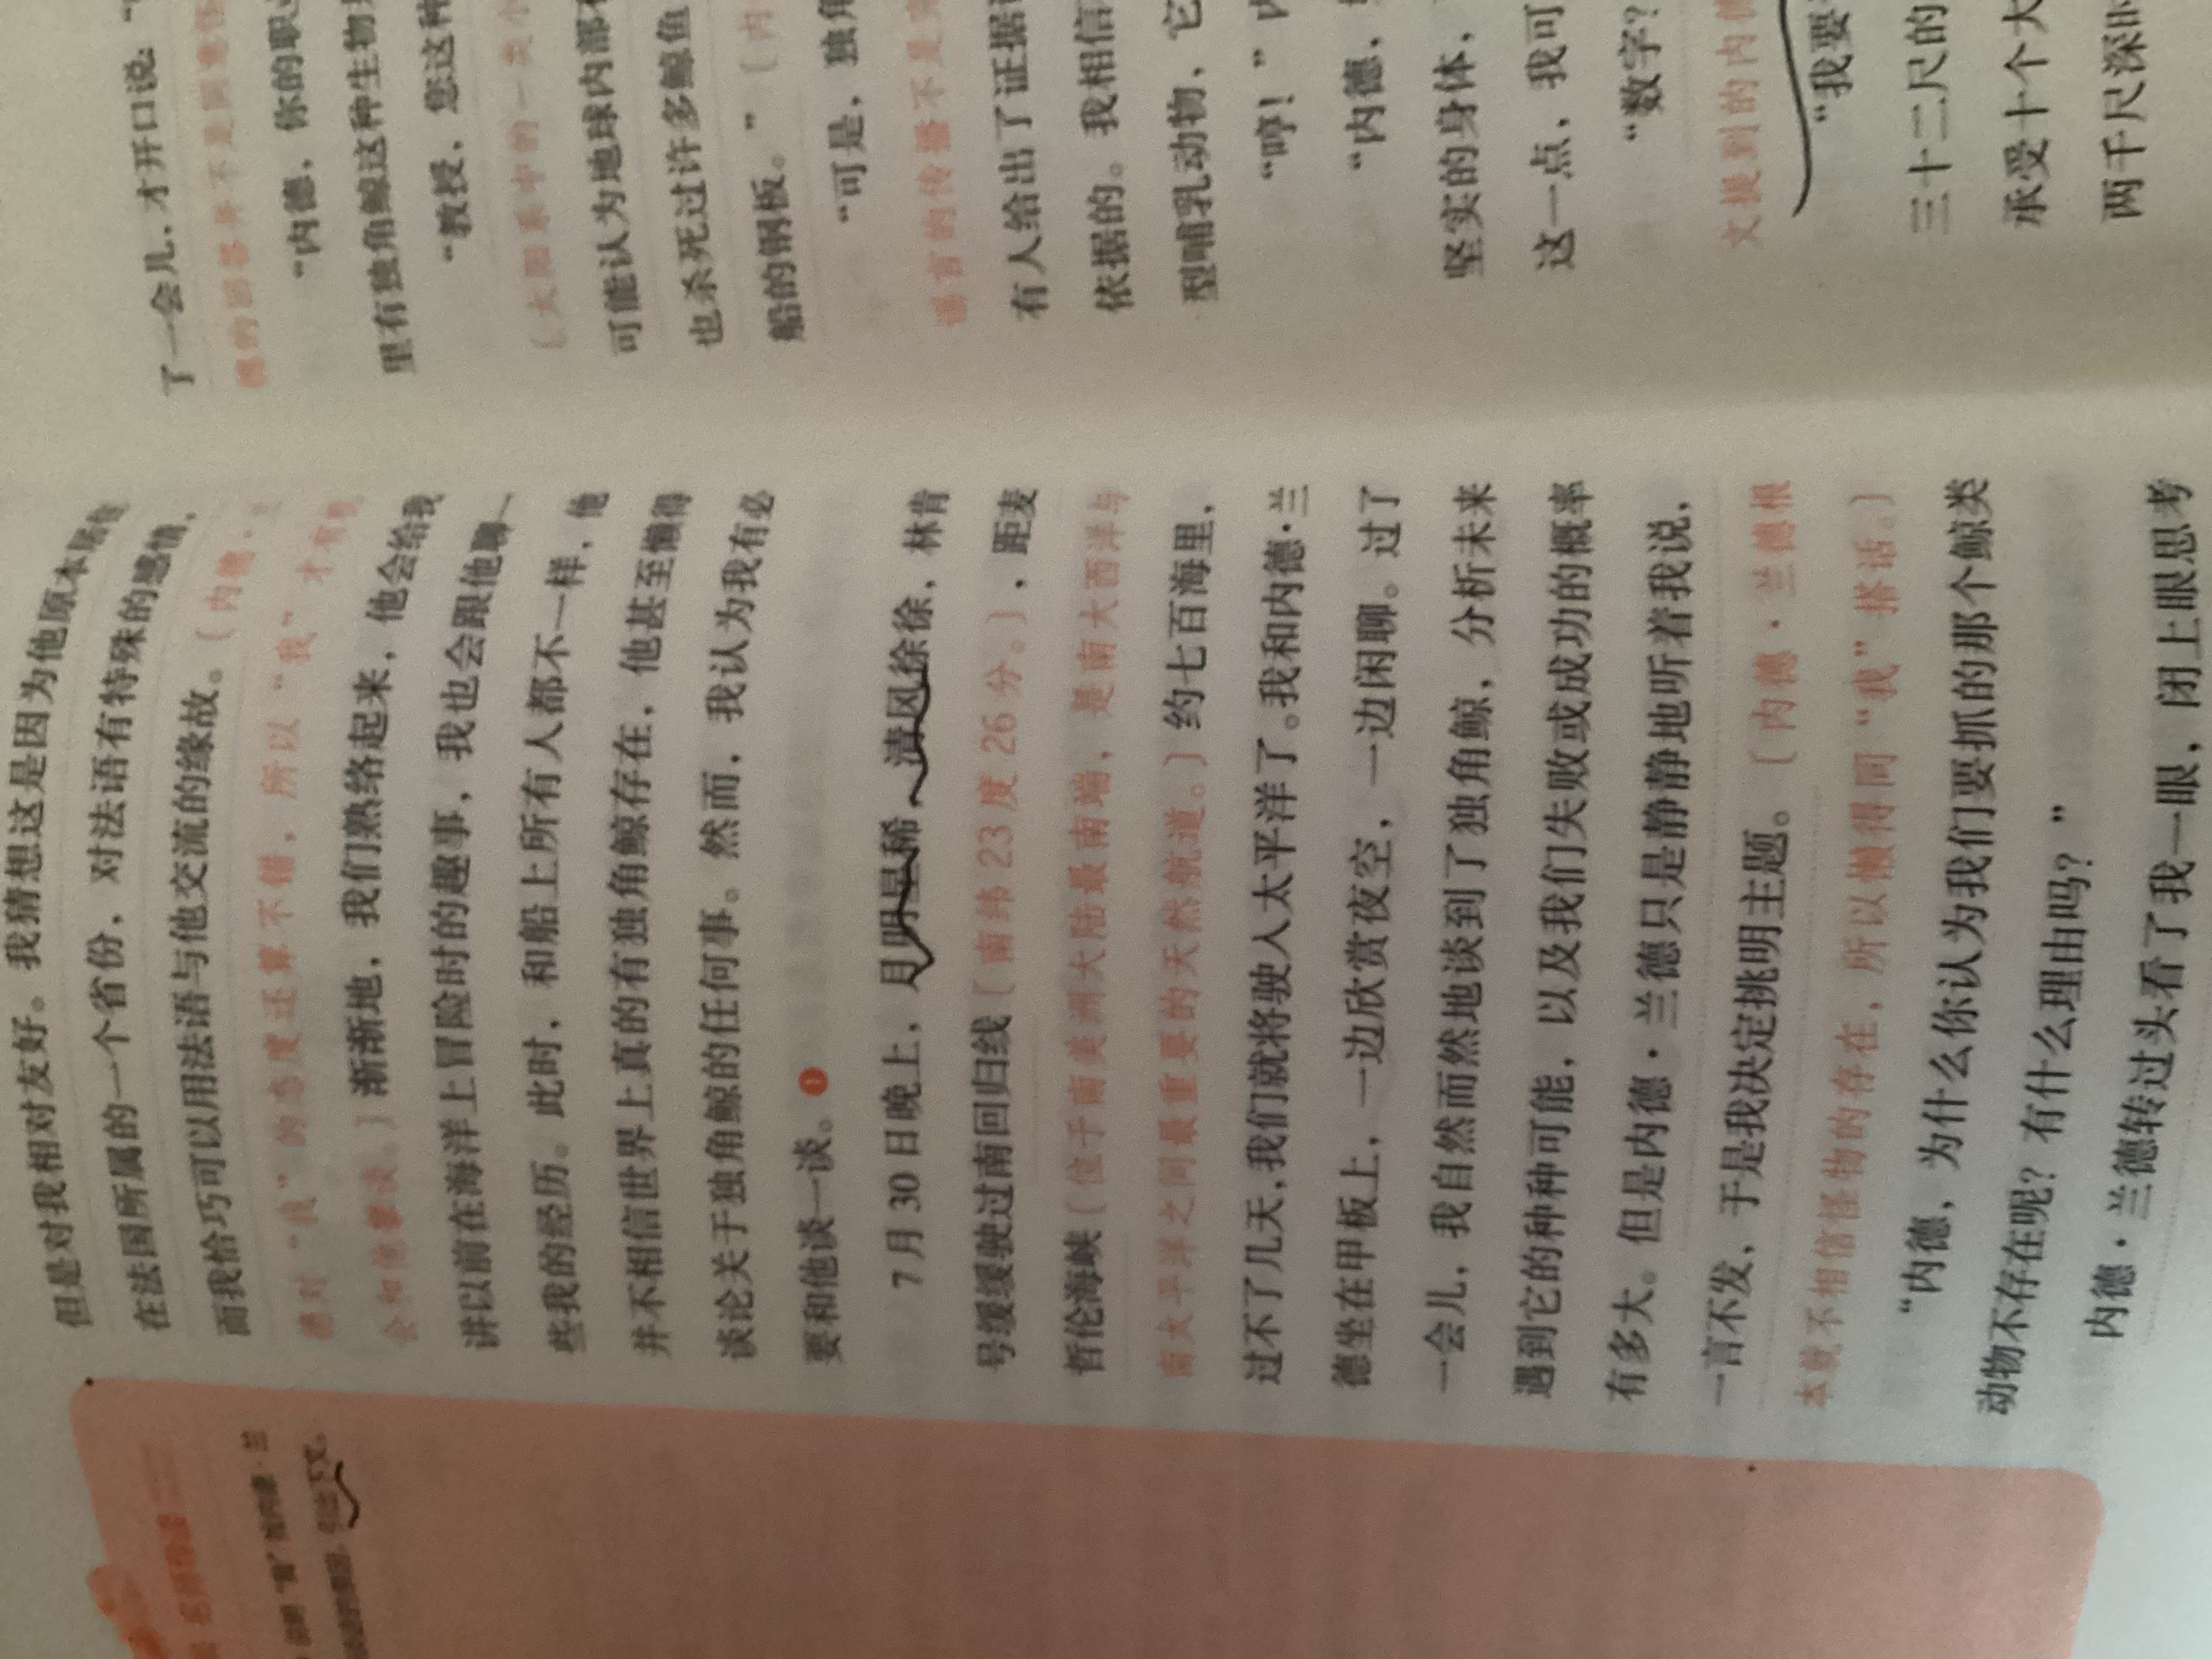 但是对我相对友好。我猜想这是因为他原本居住
在法国所属的一个省份，对法语有特殊的感情，
而我恰巧可以用法语与他交流的缘故。〔内德·兰
德对“我”的态度还算不错，所以“我”才有机
会和他攀谈。〕渐渐地，我们熟络起来，他会给我
讲以前在海洋上冒险时的趣事，我也会跟他聊一
些我的经历。此时，和船上所有人都不一样，他
并不相信世界上真的有独角鲸存在，他甚至懒得
谈论关于独角鲸的任何事。然而，我认为我有必
要和他谈一谈。❶
7月30日晚上，月明星稀，清风徐徐，林肯
号缓缓驶过南回归线〔南纬23度26分。〕，距麦
哲伦海峡〔位于南美洲大陆最南端，是南大西洋与
南太平洋之间最重要的天然航道。〕约七百海里，
过不了几天，我们就将驶入太平洋了。我和内德·兰
德坐在甲板上，一边欣赏夜空，一边闲聊。过了
一会儿，我自然而然地谈到了独角鲸，分析未来
遇到它的种种可能，以及我们失败或成功的概率
有多大。但是内德·兰德只是静静地听着我说，
一言不发，于是我决定挑明主题。〔内德·兰德根
本就不相信怪物的存在，所以懒得同“我”搭话。〕
“内德，为什么你认为我们要抓的那个鲸类
动物不存在呢？有什么理由吗？”
内德·兰德转过头看了我一眼，闭上眼思考
了一会儿，才开口说：“
德的回答并不是
“内德，你的职
里有独角鲸这种生物
“教授，您这种
〔太阳系中的一类小
可能认为地球内部
也杀死过许多鲸鱼
船的钢板。”〔内
“可是，独角
谣言的传播不是
有人给出了证据
依据的。我相信
型哺乳动物，它
“哼！”内
“内德，
坚实的身体，
这一点，我可
“数字？
文提到的内
“我要
三十二尺的
承受十个大
两千尺深时